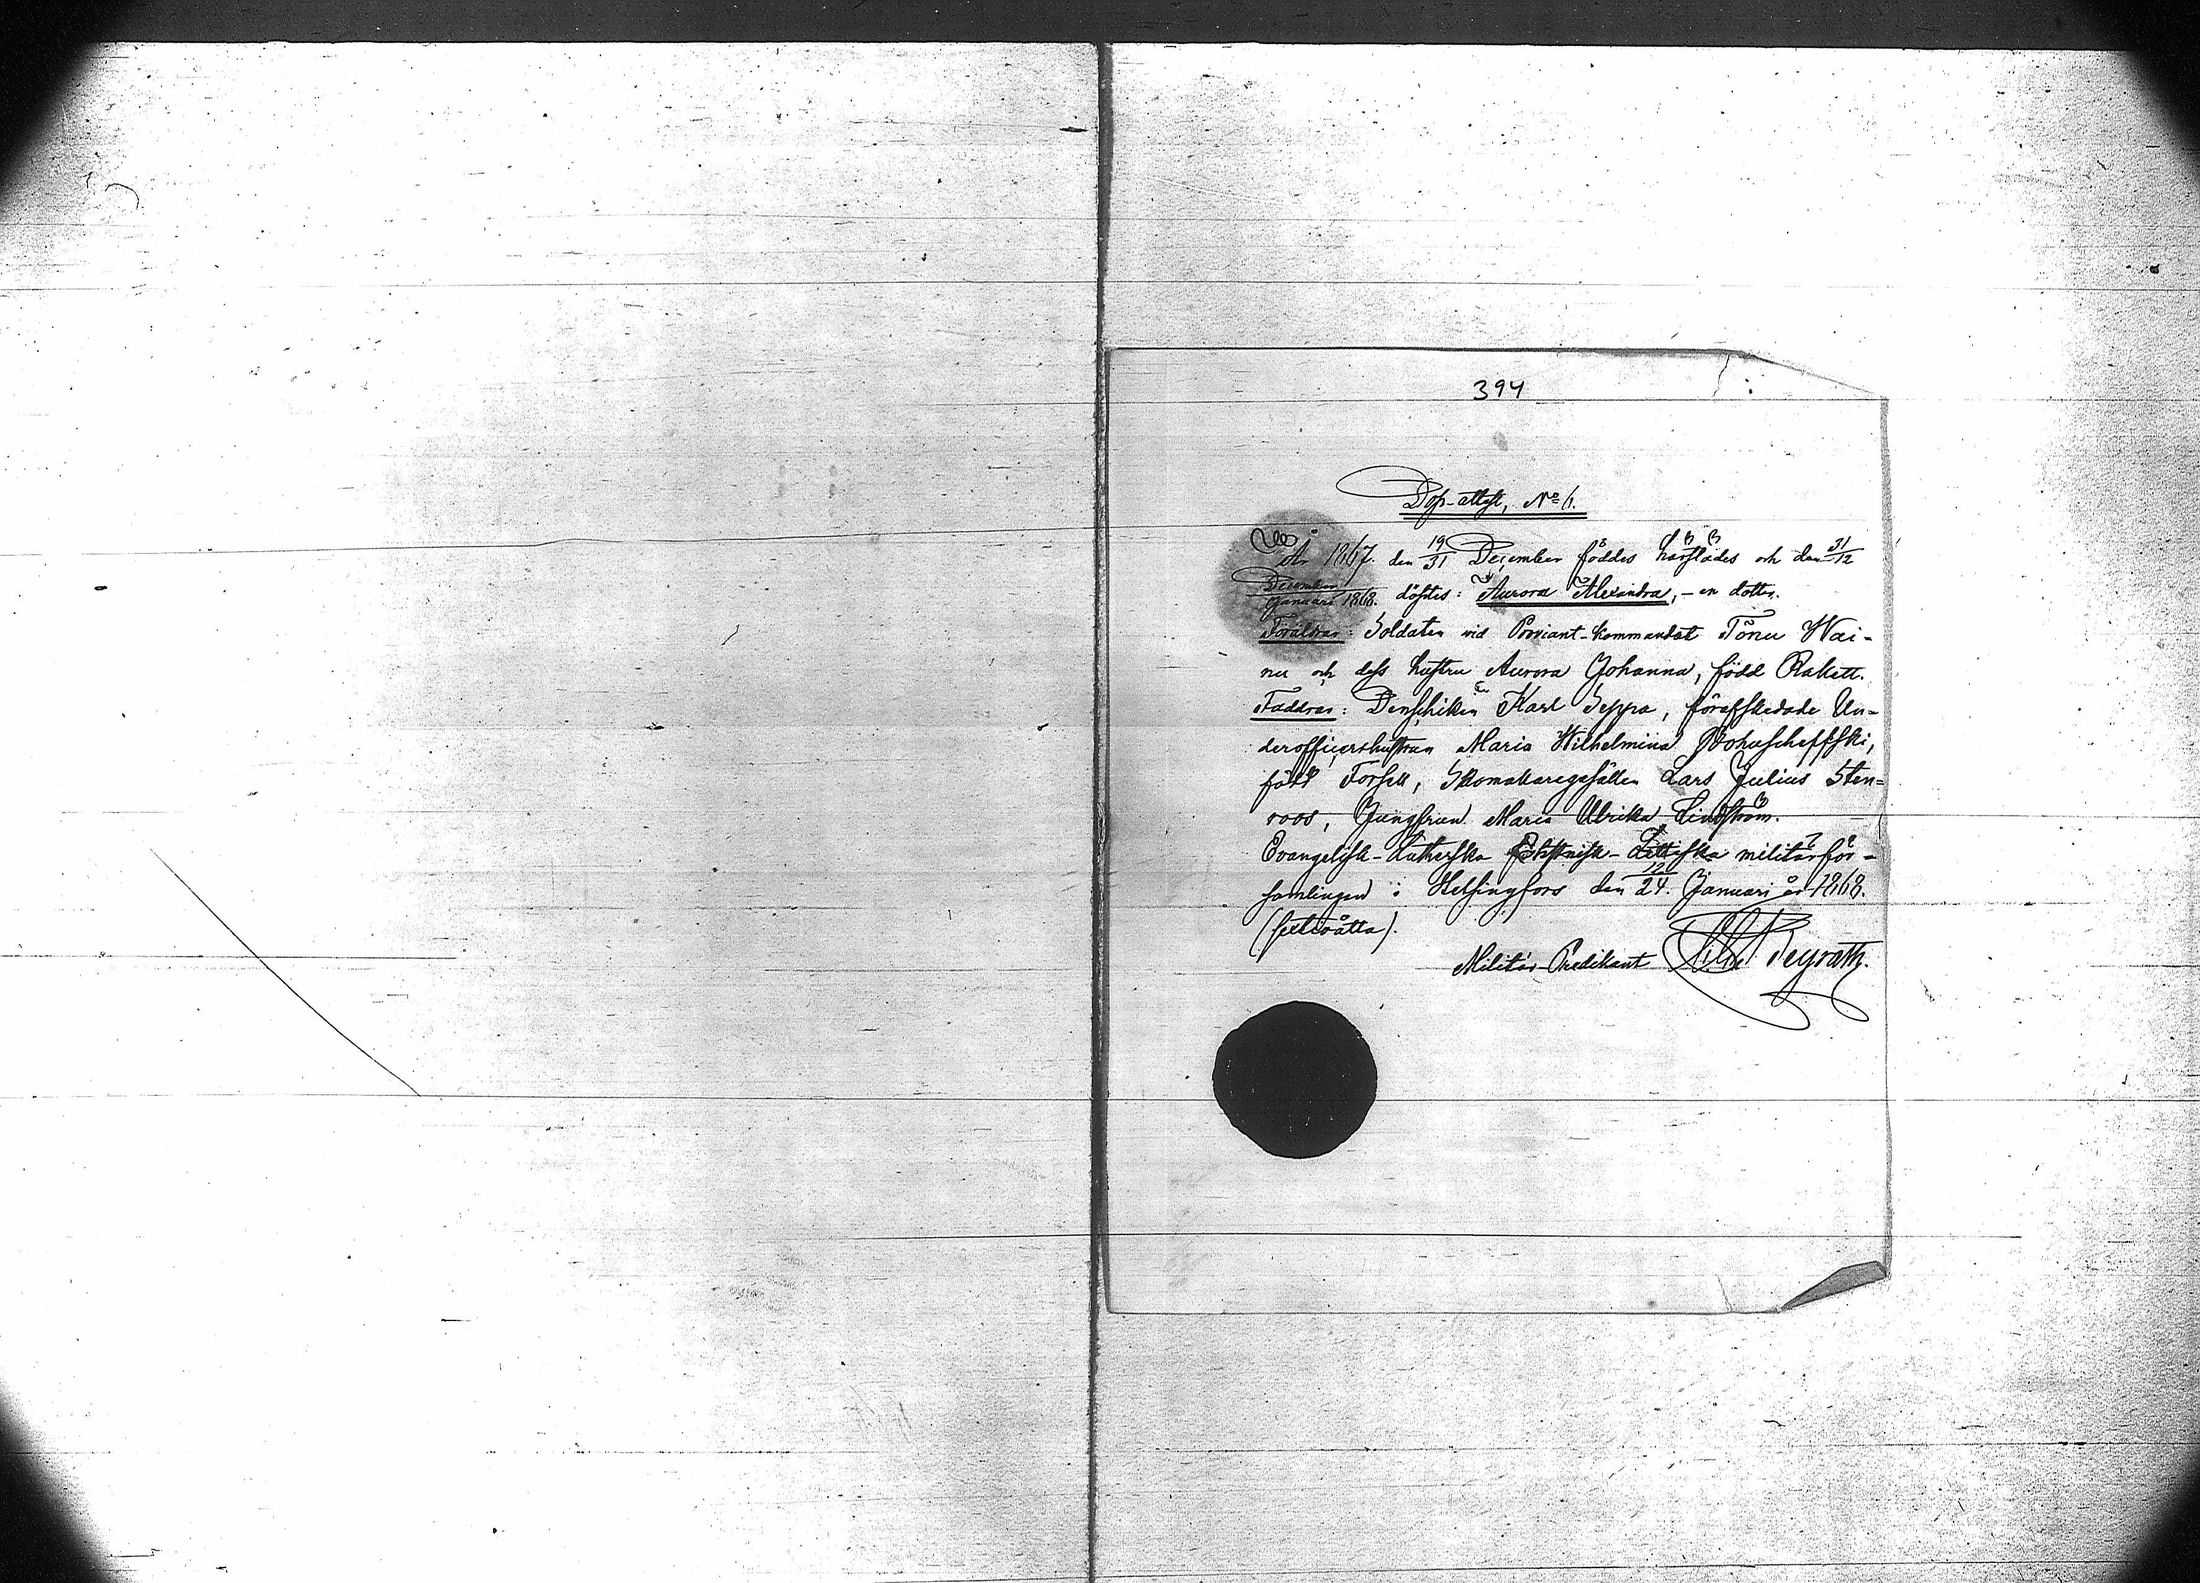 394
Dop-attest, No 6.
År 1867. den 19/31 December föddes härstädes och den 31/12
December/Januari 1868. döptes: Aurora Alexandra, - en dotter.
Föräldrar: Soldaten vid Proviant-Kommandot Tõnu Wai-
nu och dess hustru Aurora Johanna, född Rakett.
Faddrar: Denschiken Karl Seppa, förafskedade Un-
derofficershustrun Maria Wilhelmina
född Forsell, Skomakaregesällen Lars Julius Sten-
roos, Jungfrun Maria Ulrika Lindström.
Evangelisk-Lutherska Estnisk-Lettiska militärför-
samlingen i Helsingfors den 12/24. Januari år 1868.
Militär-Predikant